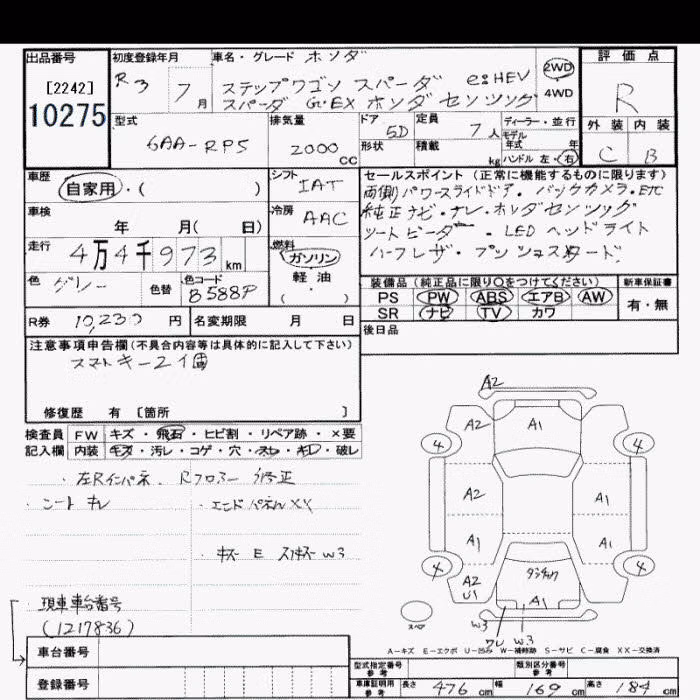 出品番号
[2242]
10275
初度登録年月
R3 7 月
車名・グレード ホンダ
ステップワゴン スパーダ e:HEV
スパーダ G・EX ホンダ センシング
2WD
4WD
評価点
R
外装 内装
C B
型式
6AA-RP5
排気量
2000 cc
ドア
5D
形状
定員
7 人
積載
kg
ディーラー・並行
モデル
年式 年
ハンドル 左・右
車歴
自家用・( )
シフト
IAT
車検
年 月( 日)
冷房
AAC
走行
4万4千973 km
燃料
ガソリン
軽油
・( )
色
グレー
色替
色コード
B588P
R券 10,230 円
名変期限 月 日
セールスポイント(正常に機能するものに限ります)
両側パワースライドドア・バックカメラ・ETC
純正ナビ・ナレ・ホンダセンシング
シートヒーター・LEDヘッドライト
ハーフレザ・プッシュスタード
装備品(純正品に限り○をつけてください) 新車保証書
PS PW ABS エアB AW
SR ナビ TV カワ
有・無
後日品
注意事項申告欄(不具合内容等は具体的に記入して下さい)
スマトキー2個
修復歴 有 [箇所 ]
検査員
記入欄
FW キズ・飛石・ヒビ割・リペア跡・×要
内装 キズ・汚レ・コゲ・穴・スレ・キレ・破レ
・左Rインパネ、Rフロアー修正
・シート キレ
・エンドパネルXX
・キズ E スリキズ W3
現車車台番号
(1217836)
車台番号
登録番号
A2
A2 A1
4 4
A2 A1
A1 A1
4 4
A2
U1
A1
W3 ワレ W3
スペア
A-キズ E-エクボ U-凹み W-補修跡 S-サビ C-腐食 XX-交換済
型式指定番号
参考
類別区分番号
参考
車庫証明用
参考
長さ 476 cm 幅 169 cm 高さ 184 cm